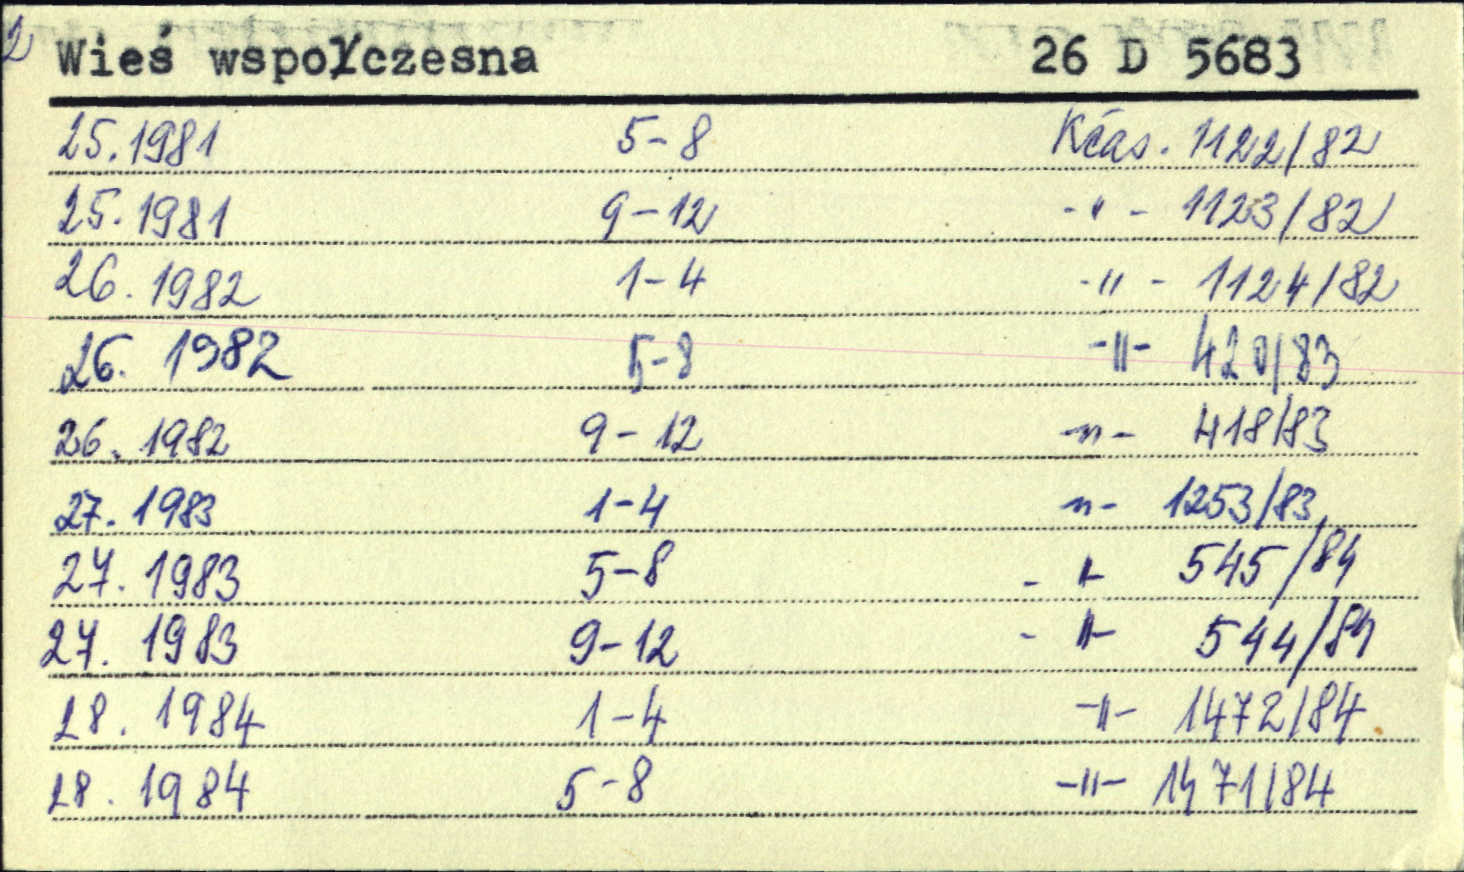 2
Wieś wspołczesna 26 D 5683
25.1981 5-8 Kčas. 1122/82
25.1981 9-12 -"- 1123/82
26.1982 1-4 -"- 1124/82
26. 1982 5-8 -"- 420/83
26. 1982 9-12 -"- 418/83
27. 1983 1-4 -"- 1253/83
27. 1983 5-8 -"- 545/84
27. 1983 9-12 -"- 544/84
28. 1984 1-4 -"- 1472/84
28. 1984 5-8 -"- 1471/84